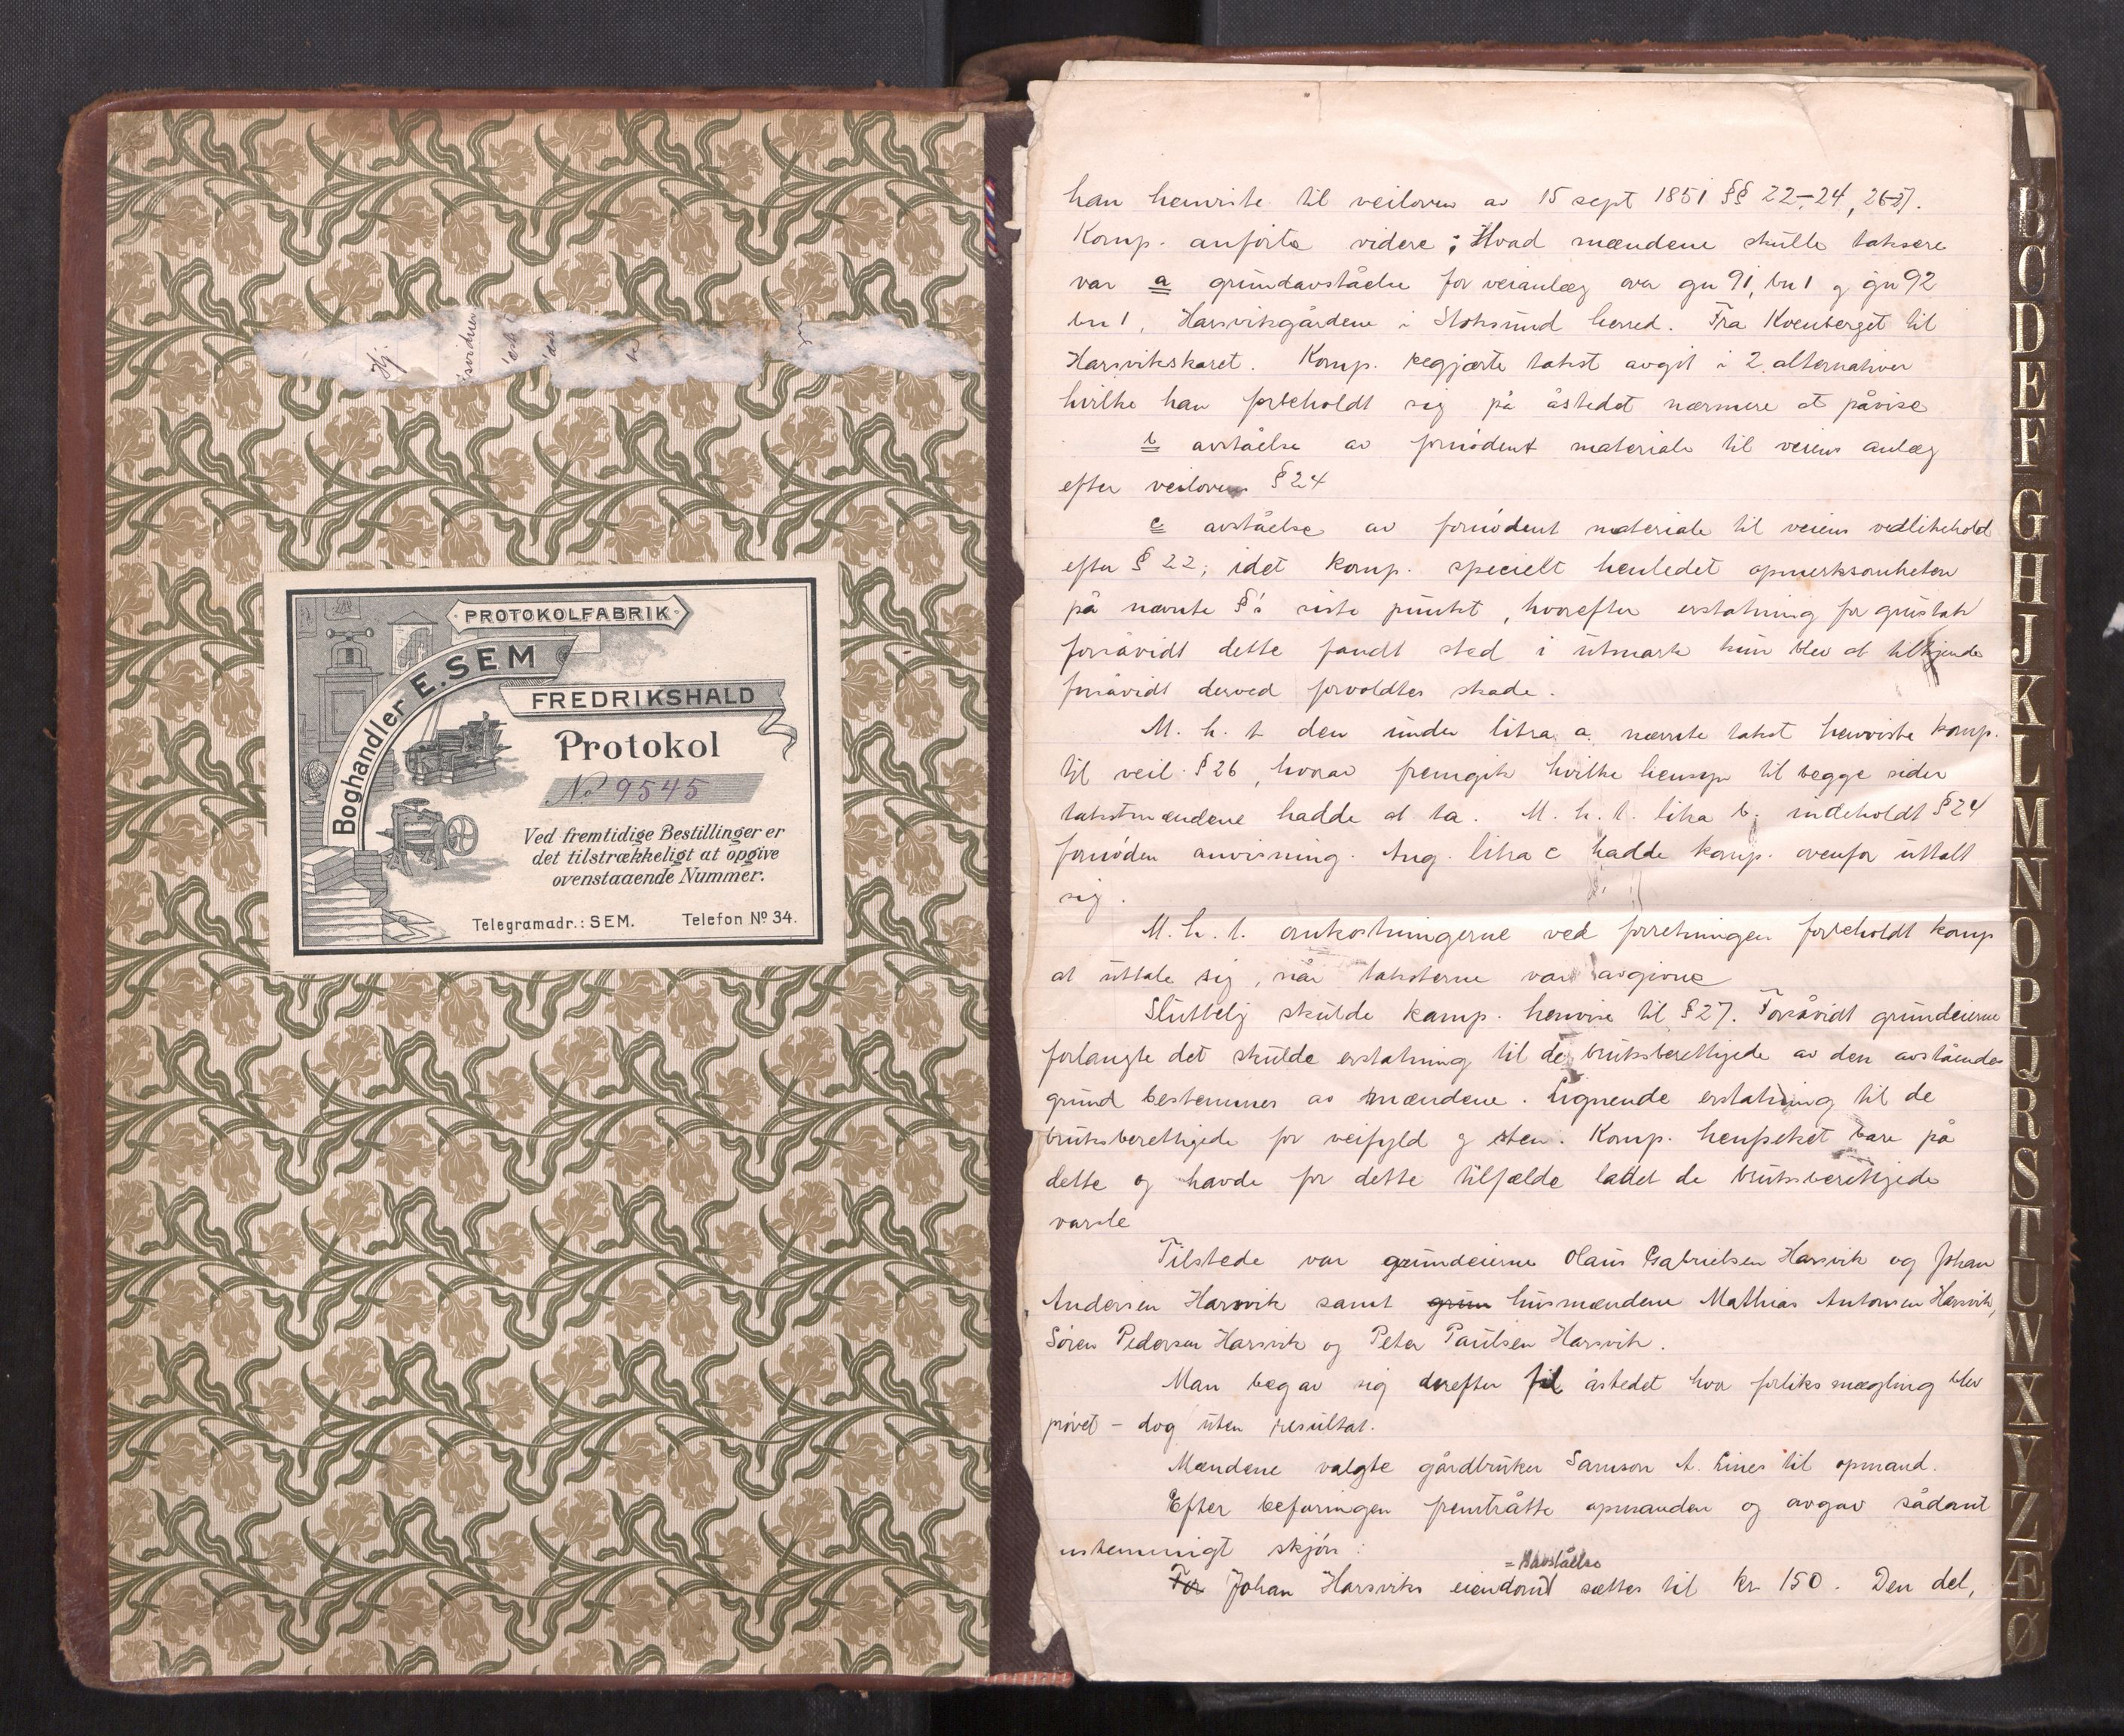 PROTOKOLFABRIK
Boghandler E. SEM
FREDRIKSHALD
Protokol
No 9545
Ved fremtidige Bestillinger er
det tilstrækkeligt at opgive
ovenstaaende Nummer.
Telegramadr.: SEM. Telefon No 34.
han henviste til veiloven av 15 sept 1851 §§ 22-24, 26-27.
Komp. anførte videre; Hvad mændene skulle taksere
var a grundavståelse for veianlæg over gn 91, bn 1 og gn 92
bn 1, Harsviksgårdene i Stoksund herred. Fra Kvenberget til
Harsvikskaret. Komp. begjærte takst avgit i 2 alternativer
hvilke han forbeholdt sig på åstedet nærmere at påvise
b avståelse av fornødent materiale til veiens anlæg
efter veilovens § 24
c avståelse av fornødent materiale til veiens vedlikehold
efter § 22; idet komp. specielt henledet opmerksomheten
på nævnte §'s siste punkt, hvorefter erstatning for grustak
forsåvidt dette fandt sted i utmark kun blev at tilkjende
forsåvidt derved forvoldtes skade.
M. h. t den under litra a. nævnte takst henviste komp.
til veil. § 26, hvorav fremgik hvilke hensyn til begge sider
takstmændene hadde at ta. M. h. t. litra b. indeholdt § 24
fornøden anvisning. Ang. litra c hadde komp. ovenfor uttalt
sig.
M. h. t. omkostningerne ved forretningen forbeholdt komp
at uttale sig, når taksterne var avgivne
Sluttelig skulde komp. henvise til § 27. Forsåvidt grundeierne
forlangte det skulde erstatning til de bruksberettigede av den avståendes
grund bestemmes av mændene. Lignende erstatning til de
bruksberettigede for veifyld og sten. Komp. henpeket bare på
dette og havde for dette tilfælde ladet de bruksberettigede
varsle
Tilstede var grundeierne Olaus Gabrielsen Harsvik og Johan
Andersen Harsvik samt grun husmændene Mathias Antonsen Harsvik,
Søren Pedersen Harsvik og Peter Paulsen Harsvik.
Man begav sig derefter til åstedet hvor forliksmægling blev
prøvet - dog uten resultat.
Mændene valgte gårdbruker Samson A. Lines til opmand.
Efter befaringen fremtråtte opmanden og avgav sådant
enstemmigt skjøn:
= avståelse
For Johan Harsviks eiendom sættes til kr 150. Den del,
B
C
D
E
F
G
H
J
K
L
M
N
O
P
Q
R
S
T
U
W
X
Y
Z
Æ
Ø